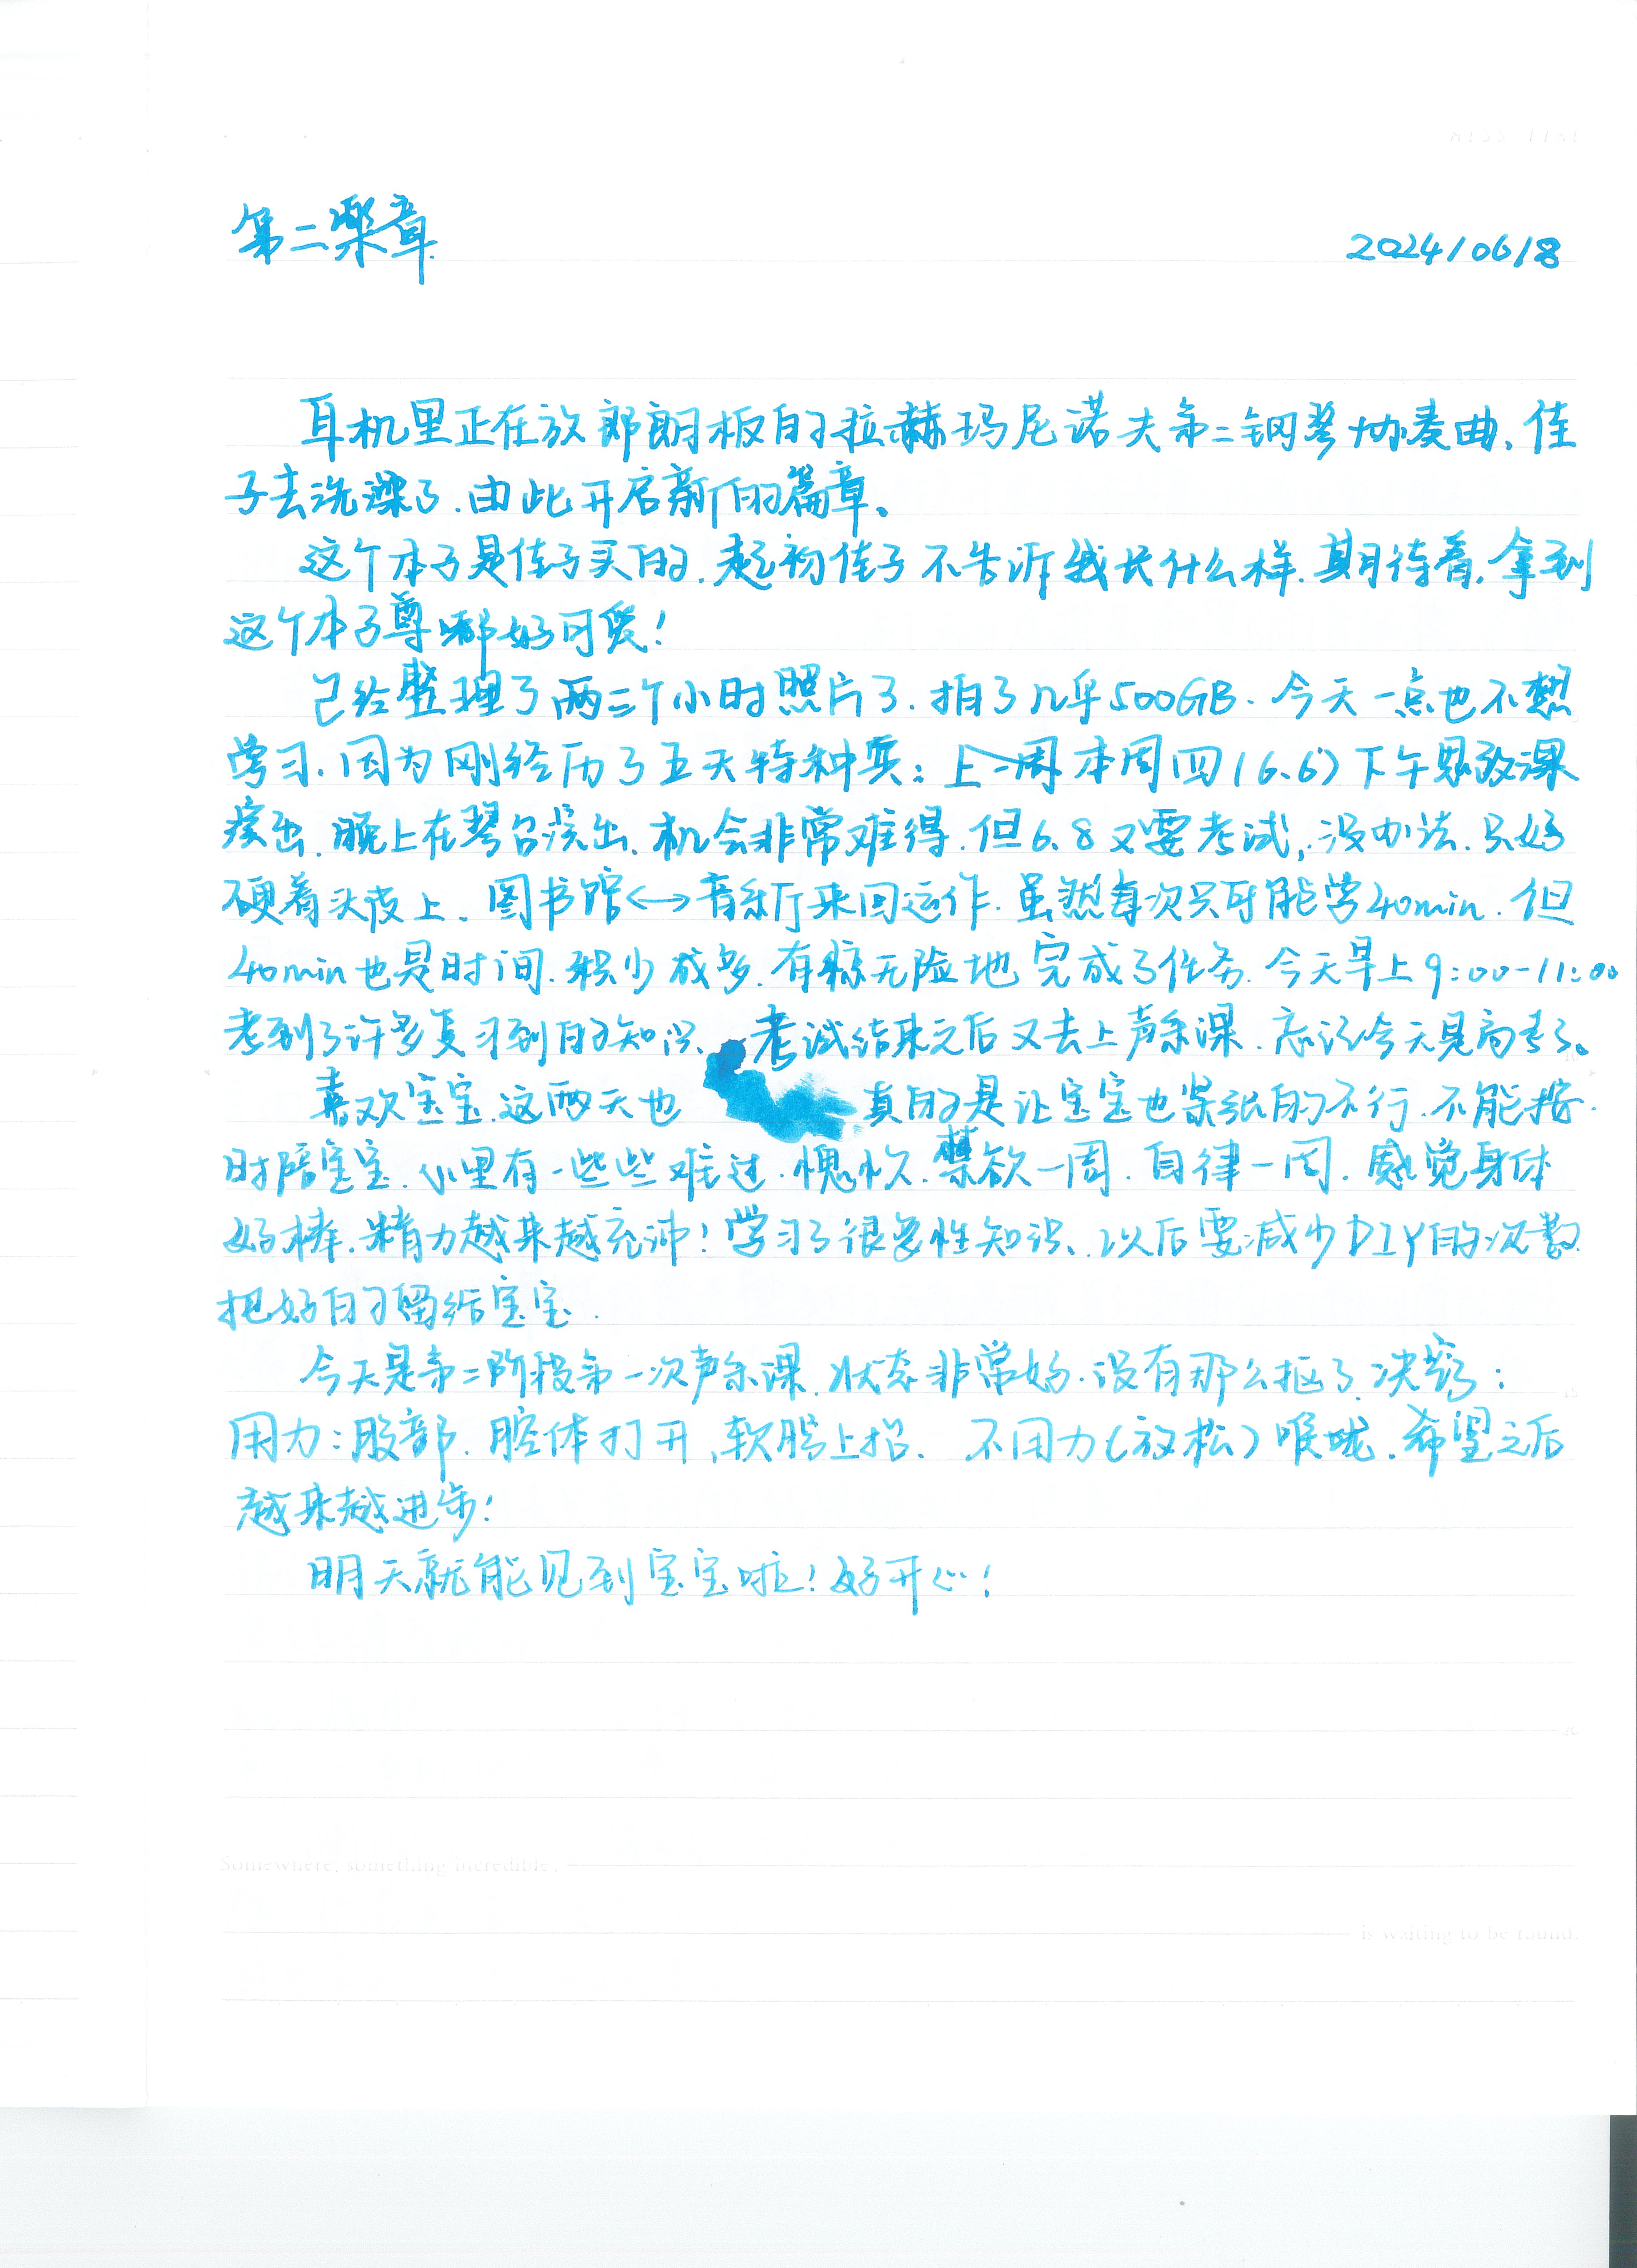 第二樂章
2024/06/8
耳机里正在放郎朗板的拉赫玛尼诺夫第二钢琴协奏曲、佳
子去洗澡了.由此开启新的篇章。
这个本子是佳子买的.起初佳子不告诉我长什么样.期待着.拿到
这个本子尊嘟好可爱!
已经整理了两三个小时照片了.拍了几乎500GB.今天一点也不想
学习.因为刚经历了五天特种兵:上周本周四(6.6)下午思政课
演出.晚上在琴台演出.机会非常难得.但6.8又要考试,没办法.只好
硬着头皮上.图书馆<->音乐厅来回运作.虽然每次只可能学40min.但
40min也是时间.积少成多.有惊无险地完成了任务.今天早上9:00-11:00
考到了许多复习到的知识、考试结束之后又去上声乐课.忘记今天是高考了。
喜欢宝宝.这两天也 真的是让宝宝也紧张的不行.不能按
时陪宝宝.心里有一些些难过.愧疚.禁欲一周.自律一周.感觉身体
好棒.精力越来越充沛!学习了很多性知识、以后要减少DIY的次数
把好的留给宝宝.
今天是第二阶段第一次声乐课.状态非常好.没有那么抠了.决窍:
用力:股部.腔体打开、软腭上抬. 不用力(放松)喉咙.希望之后
越来越进步!
明天就能见到宝宝啦!好开心!
Somewhere, something incredible,
is waiting to be found.